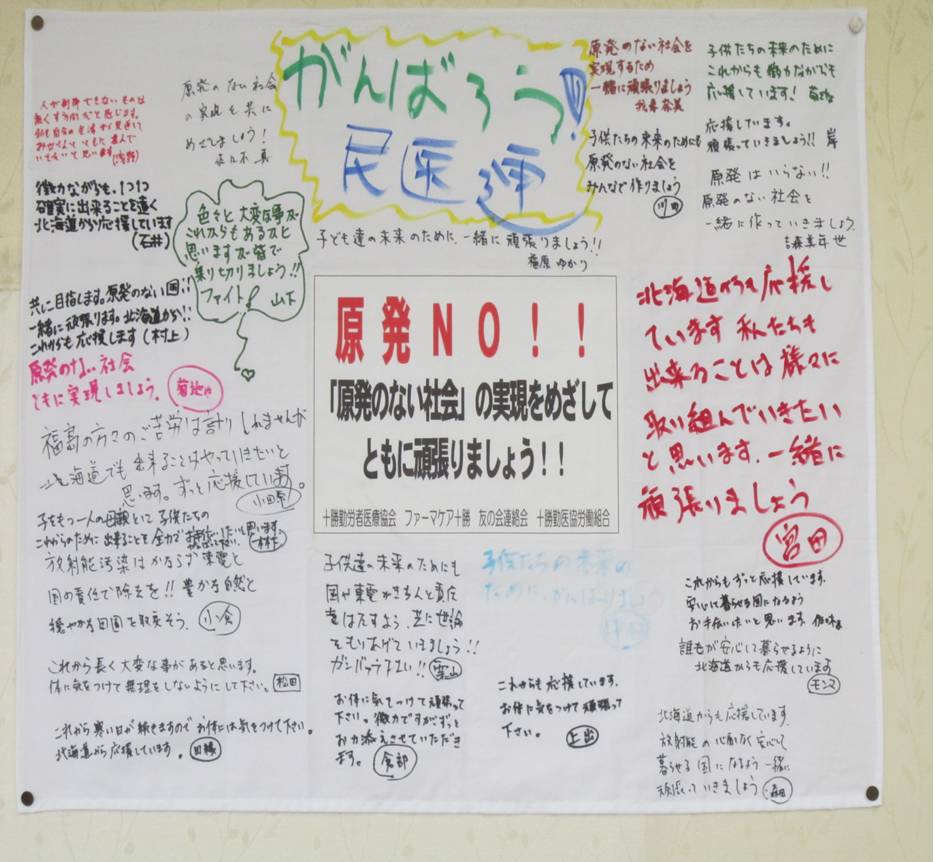 がんばろう!!
民医連
人が制御できないものは
無くすべきだと感じます。
原発のない社会
の実現を共に
めざしましょう!
佐々木 真
微力ながらも、1つ1つ
確実に出来ることを遠く
北海道から応援しています
(石井)
色々と大変な事が
これからもあると
思いますが皆で
乗り切りましょう!!
ファイト! 山下
共に目指します。原発のない国!!
一緒に頑張ります。北海道から!!
これからも応援します(村上)
原発のない社会
ともに実現しましょう。 菊地
福島の方々のご苦労は計りしれませんが
北海道でも出来ることはやっていきたいと
思います。ずっと応援しています。
小田原
子をもつ一人の母親として子供たちの
これからのために出来ることを全力で
放射能汚染はかならず東電と
国の責任で除去を!!豊かな自然と
穏やかな田園を取戻そう。 小倉
これから長く大変な事があると思います。
体に気をつけて無理をしないようにして下さい。 松田
これから寒い日が続きますのでお体には気をつけて下さい。
北海道から応援しています。
原発のない社会を
実現するため
一緒に頑張りましょう
子供たちの未来のためにも
原発のない社会を
みんなで作りましょう
川田
子供たちの未来のために
これからも微力ながらも
応援しています! 菊地
応援しています。
頑張っていきましょう!! 岸
原発はいらない!!
原発のない社会を
一緒に作っていきましょう
子ども達の未来のために、一緒に頑張りましょう!!
福原 ゆかり
原発NO!!
「原発のない社会」の実現をめざして
ともに頑張りましょう!!
十勝勤労者医療協会 ファーマケア十勝 友の会連絡会 十勝勤医協労働組合
北海道からも応援し
ています 私たちも
出来ることは様々に
取り組んでいきたい
と思います。一緒に
頑張りましょう
宮田
子供達の未来のためにも
国や東電がきちんと責任
を果たすよう、共に世論
をもりあげていきましょう!!
ガンバッテ下さい!!
お体に気をつけて頑張って
下さい。微力ですがずっと
お力添えさせていただき
ます。 倉部
子供たちの未来の
ために、がんばりましょう
これからも応援しています。
お体に気をつけて頑張って
下さい。 上出
これからもずっと応援しています。
安心して暮らせる国になるよう
お手伝いしたいと思います。
誰もが安心して暮らせるように
北海道からも応援しています
モンマ
北海道からも応援しています。
放射能の心配なく安心して
暮らせる国になるよう一緒に
頑張っていきましょう